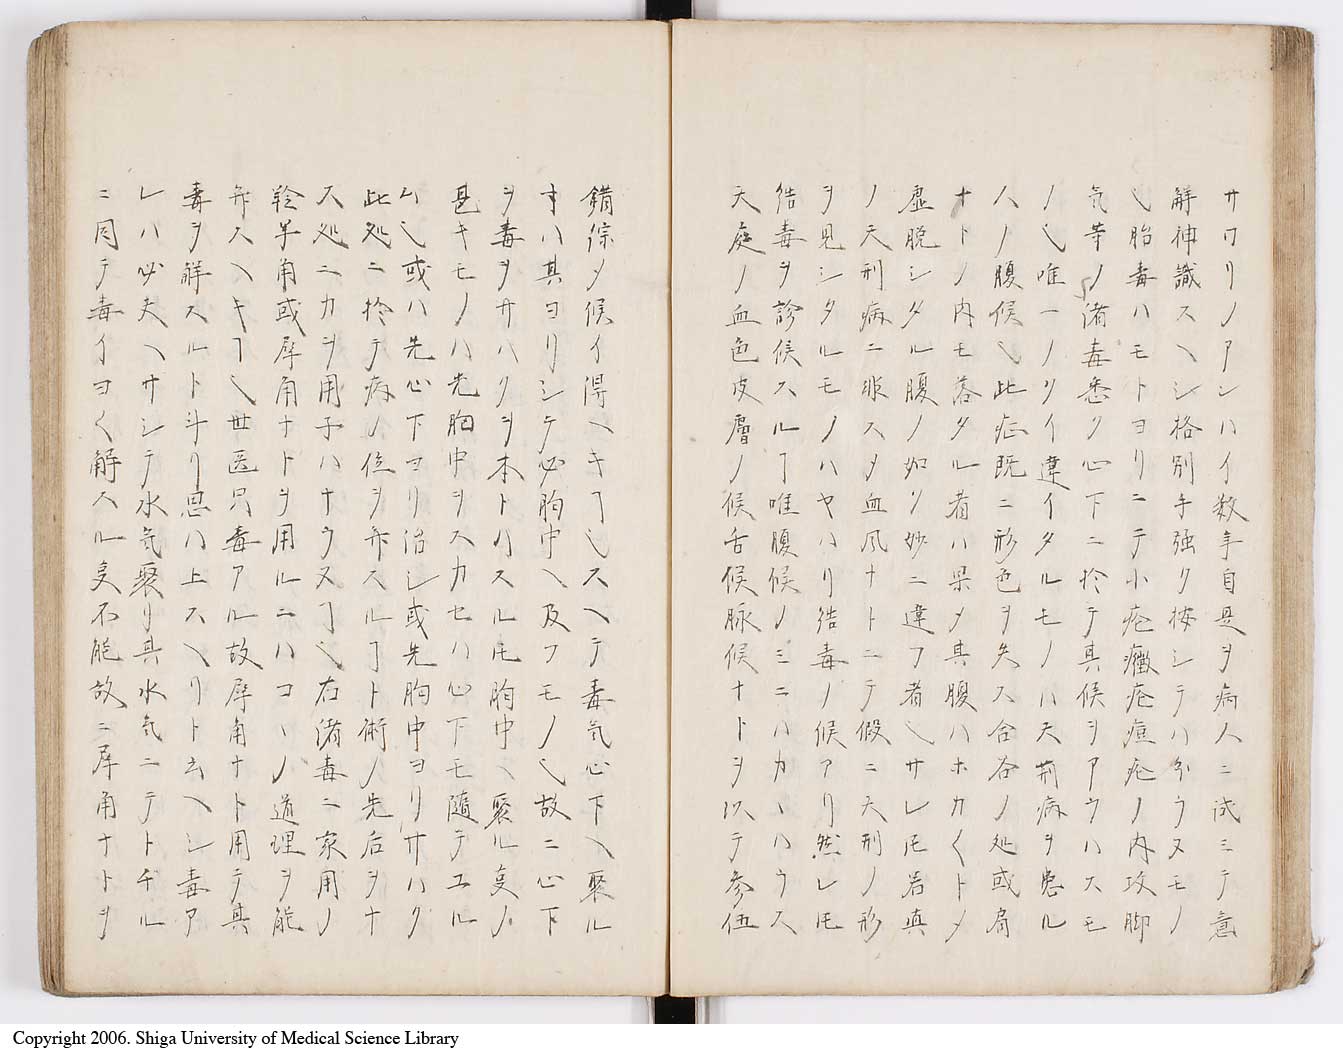 サワリノアンハイ数年自是ヲ病人ニ試ミテ意
解神識スヘシ格別手強ク按シテハ分ウヌモノ
〆胎毒ハモトヨリニテ小瘡癥疮痘疮ノ内攻脚
気等ノ諸毒悉ク心下ニ於テ其候ヲアウハスモ
ノ〆唯一ノクイ違イタルモノハ天刑病ヲ患ル
人ノ腹候〆此症既ニ形色ヲ失ス合谷ノ処或肩
ナトノ内モ落タル者ハ果〆其腹ハホカくト〆
虚脱シタル腹ノ如ソ妙ニ違フ者〆サレ𪜈若真
ノ天刑病ニ非ス〆血風ナトニテ假ニ天刑ノ形
ヲ見シタルモノハヤハリ結毒ノ候アリ然レ𪜈
結毒ヲ診候スルヿ唯腹候ノミニハカヽハウス
天庭ノ血色皮膚ノ候舌候脉候ナトヲ以テ参伍
錯综〆候イ得ヘキヿ〆スヘテ毒気心下ヘ聚ル
寸ハ其ヨリシテ必胸中ヘ及フモノ〆故ニ心下
ヲ毒ヲサハクヲ本トハスル𪜈胸中ヘ聚ル叓ノ
甚キモノハ先胸中ヲスカセハ心下モ隨テユル
ム〆或ハ先心下ヨリ治シ或先胸中ヨリサハク
此処ニ於テ病ノ位ヲ弁スルヿト術ノ先后ヲナ
ス処ニカヲ用子ハナウヌヿ〆右諸毒ニ家用ノ
羚羊角或犀角ナトヲ用ルニハコヽノ道理ヲ能
弁スヘキヿ〆世医只毒アル故犀角ナト用テ其
毒ヲ解スルト斗リ思ハ上スヘリト云ヘシ毒ア
レハ必夫ヘサシテ水気聚リ其水気ニテトチル
ニ因テ毒イヨく解スル叓不能故ニ犀角ナトヲ
Copyright 2006. Shiga University of Medical Science Library